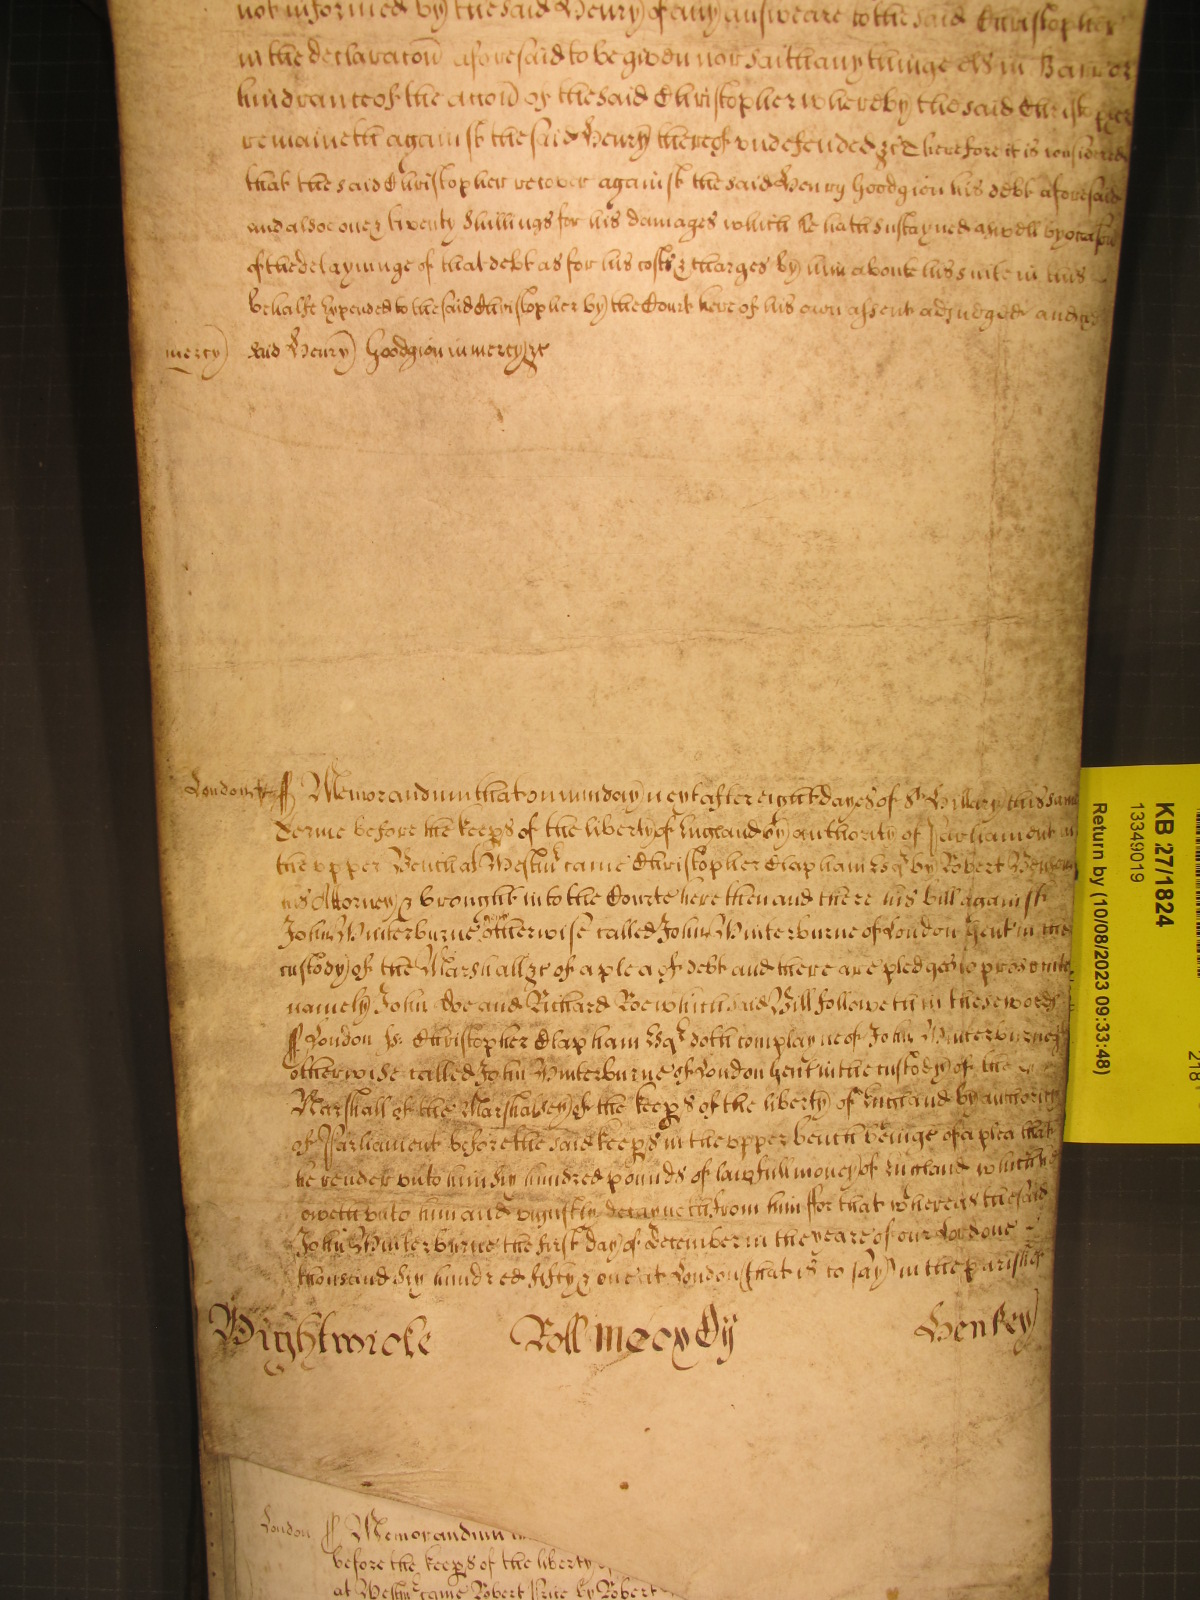 not informed by the said Henry of any answeare to the said Christopher
in the declaracon aforesaid to be given nor saith any thinge els in Barr or
hindrance of the accon of the said Christopher whereby the said Christopher
remaineth against the said Henry thereof undefended &c Therefore it is considered
that the said Christopher recover against the said Henry Hoodgion his debt aforesaid
and alsoe one & twenty shillings for his damages which he hath sustayned aswell by occasion
of the delayninge of that debt as for his costs & charges by him about his suite in this
behalfe expended to the said Christopher by the Court here of his own assent adjudged and
mercy said Henry Hoodgion in mercy &c
London ss Memorandum that on munday next after eight dayes of St Hillary this same
Terme before the keeps of the liberty of England by authority of Parliament in
the upper Bench at Westmr came Christopher Clapham Esqr by Robert
his Attorney & brought into the Courte here then and there his bill against
John Winterburne gent otherwise called John Winterburne of London Gent in the
custody of the Marshall &c of a plea of debt and there are pledges to prosecute
namely John Doe and Richard Roe which said Bill followeth in these words
ss London ss Christopher Clapham Esqr doth complayne of John Winterburne
otherwise called John Winterburne of London Gent in the custody of the
Marshall of the Marshalsey of the keeps of the liberty of England by authority
of Parliament before the said keeps in the upper bench beinge of a plea that
he render unto him six hundred pounds of lawfull money of England which he
oweth unto him and uniustly detayneth from him ffor that whereas the said
John Winterburne the first day of December in the yeare of our Lord one
thousand six hundred fifty & one at London (that is to say) in the parish of
Wightwicke Roll mccxxDij Henley
KB 27/1824
13349019
Return by (10/08/2023 09:33:48)
218
London ss Memorandum
before the keeps of the liberty
at Westmr came Robert Price by Robert